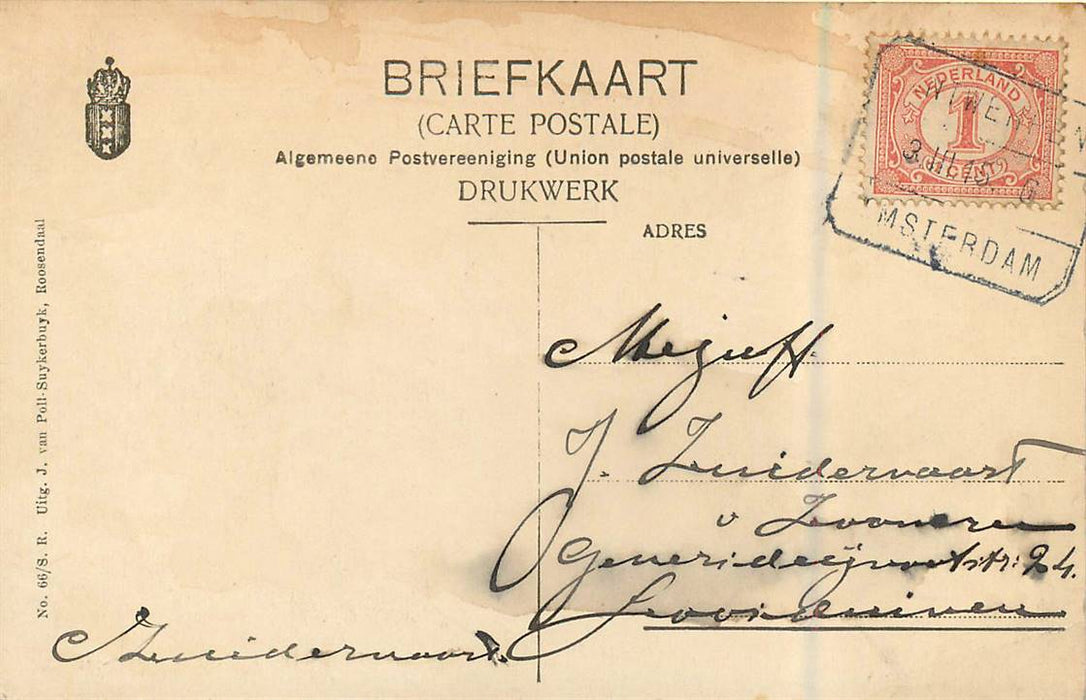 BRIEFKAART
(CARTE POSTALE)
Algemeene Postvereeniging (Union postale universelle)
DRUKWERK
ADRES
NEDERLAND
1
CENT
3 III 19 6
AMSTERDAM
No. 66/S. R. Uitg. J. van Poll-Suykerbuyk, Roosendaal
Mejuff
J. Zuidervaart
24.
Zuidervaart.